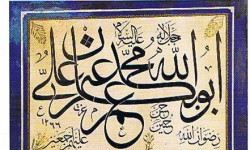 جل جلاله عليه السلام
الله محمد
ابوبكر عمر عثمان على
حسن حسين
رضوان الله عليهم اجمعين
١٢٦٦